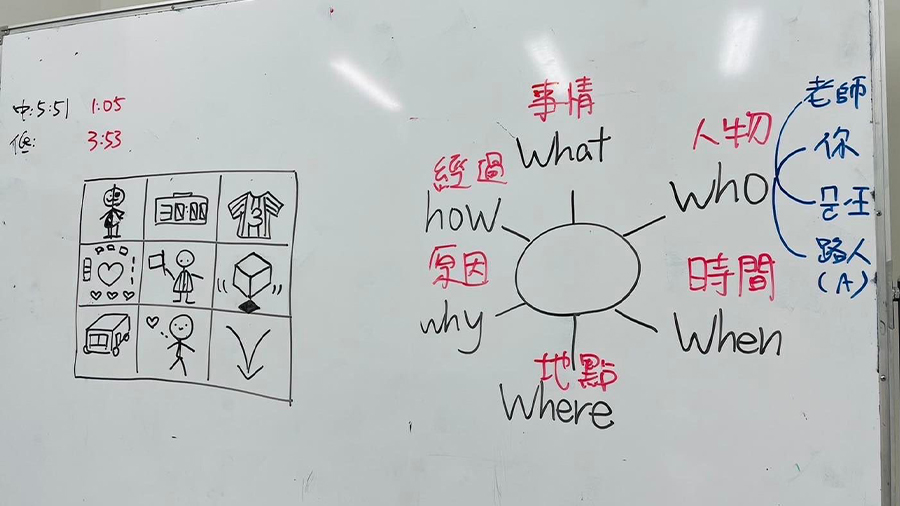 中:5:51 1:05
低: 3:53
30:00
3
事情
What
經過
how
原因
why
人物
who
老師
你
路人
(A)
時間
When
地點
Where